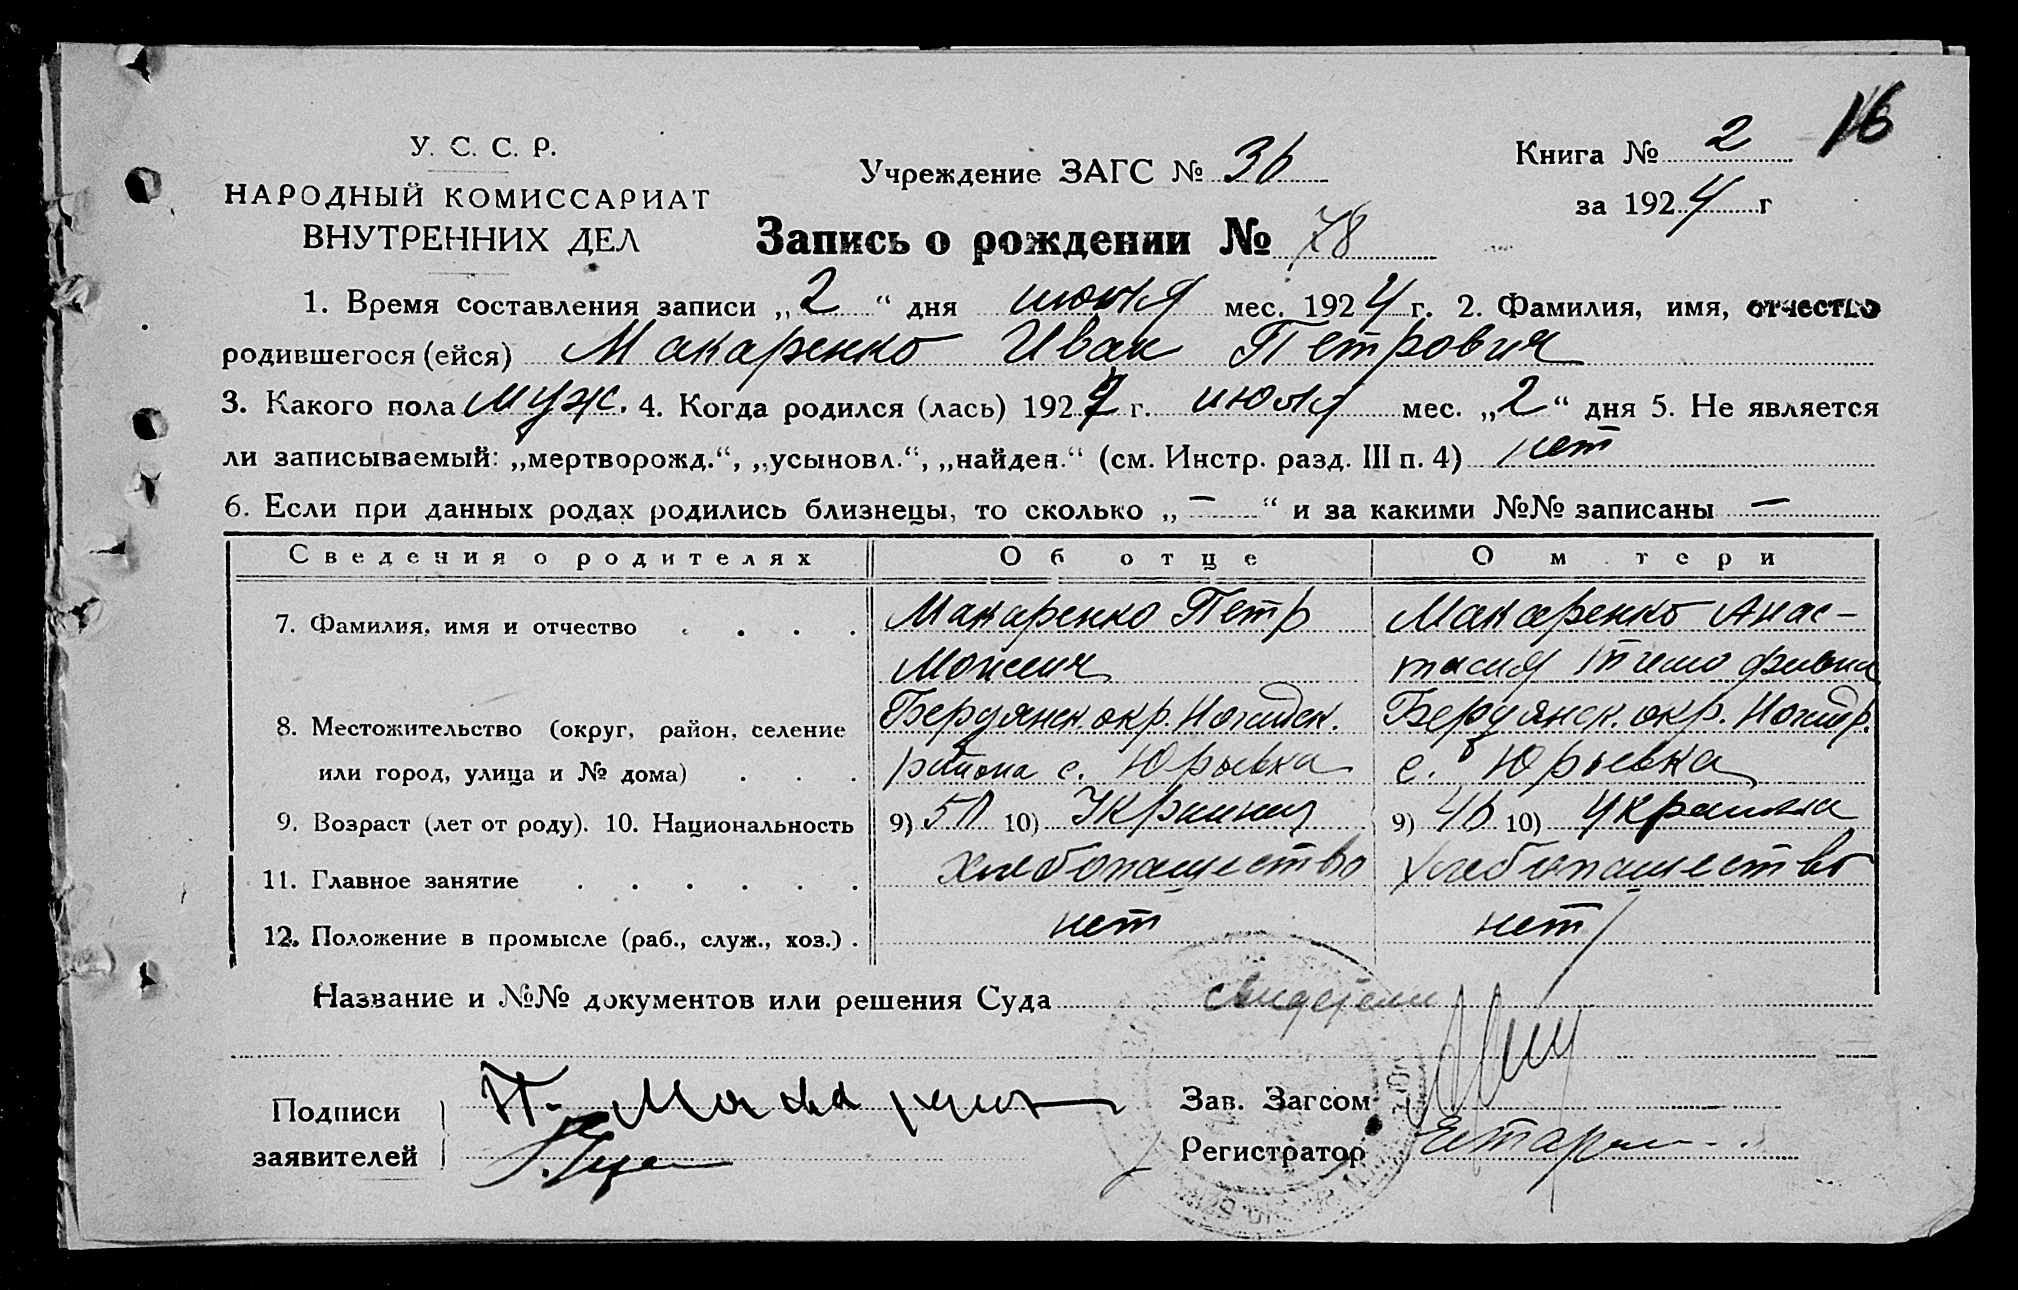 16
У. С. С. Р.
НАРОДНЫЙ КОМИССАРИАТ
ВНУТРЕННИХ ДЕЛ
Учреждение ЗАГС № 36
Книга № 2
за 1924 г
Запись о рождении № 78
1. Время составления записи „2“ дня июля мес. 1924 г. 2. Фамилия, имя, отчество
родившегося (ейся) Макаренко Иван Петрович
3. Какого пола муж. 4. Когда родился (лась) 192 г. июля мес. „2“ дня 5. Не является
ли записываемый: „мертворожд.“, „усыновл.“, „найден.“ (см. Инстр. разд. III п. 4) нет
6. Если при данных родах родились близнецы, то сколько „—“ и за какими №№ записаны —
Сведения о родителях Об отце О м тери
7. Фамилия, имя и отчество Макаренко Петр Макаренко Анас-
тасия
8. Местожительство (округ, район, селение Бердянск. окр. Бердянск. окр.
или город, улица и № дома) района с. Юрьевка с. Юрьевка
9. Возраст (лет от роду). 10. Национальность 9) 10) Украинец 9) 46 10) Украинка
11. Главное занятие хлебопашество хлебопашество
12. Положение в промысле (раб., служ., хоз.) нет нет
Название и №№ документов или решения Суда свидетели
Подписи заявителей П. Макаренко
Зав. Загсом
Регистратор